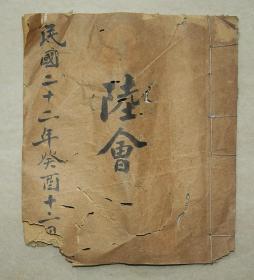 陸會
民國二十二年癸酉十二月